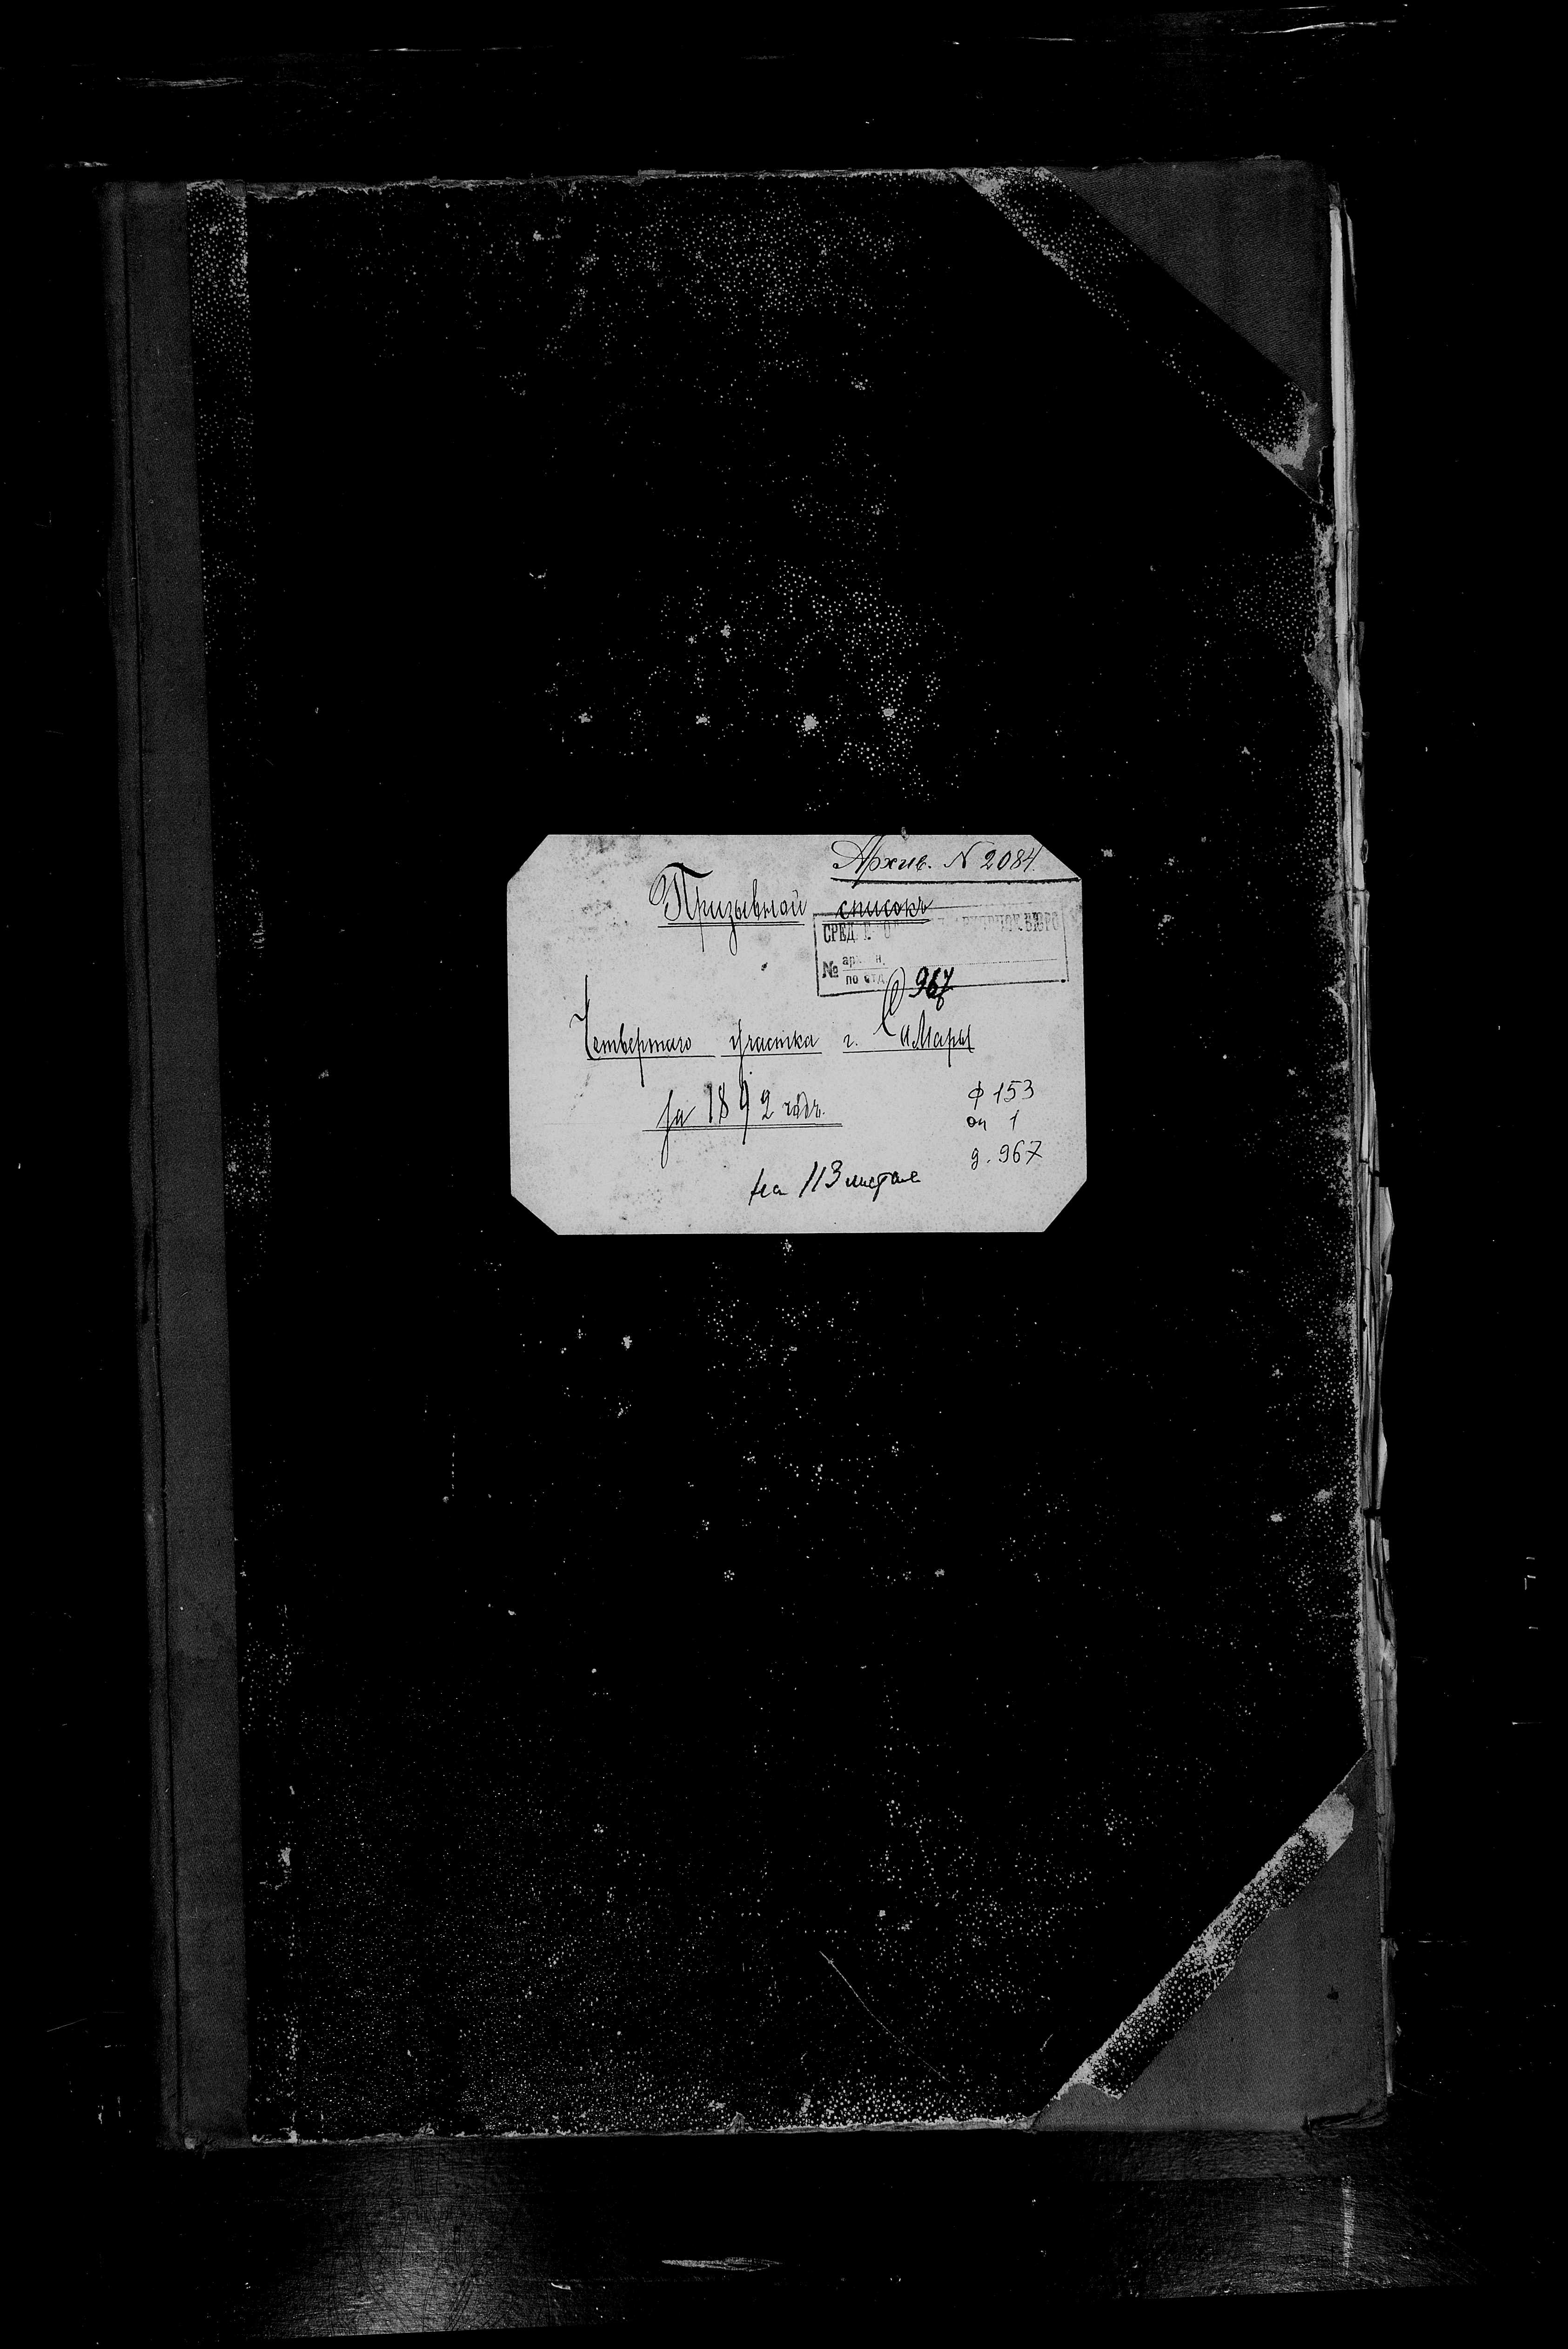 Архив. N 2084.
Призывной списокъ
СРЕД. БЮРО
№ арх. н.
по отд.
967
Четвертаго участка г. Самары
за 1892 годъ.
ф 153
оп 1
д. 967
на 113 листах